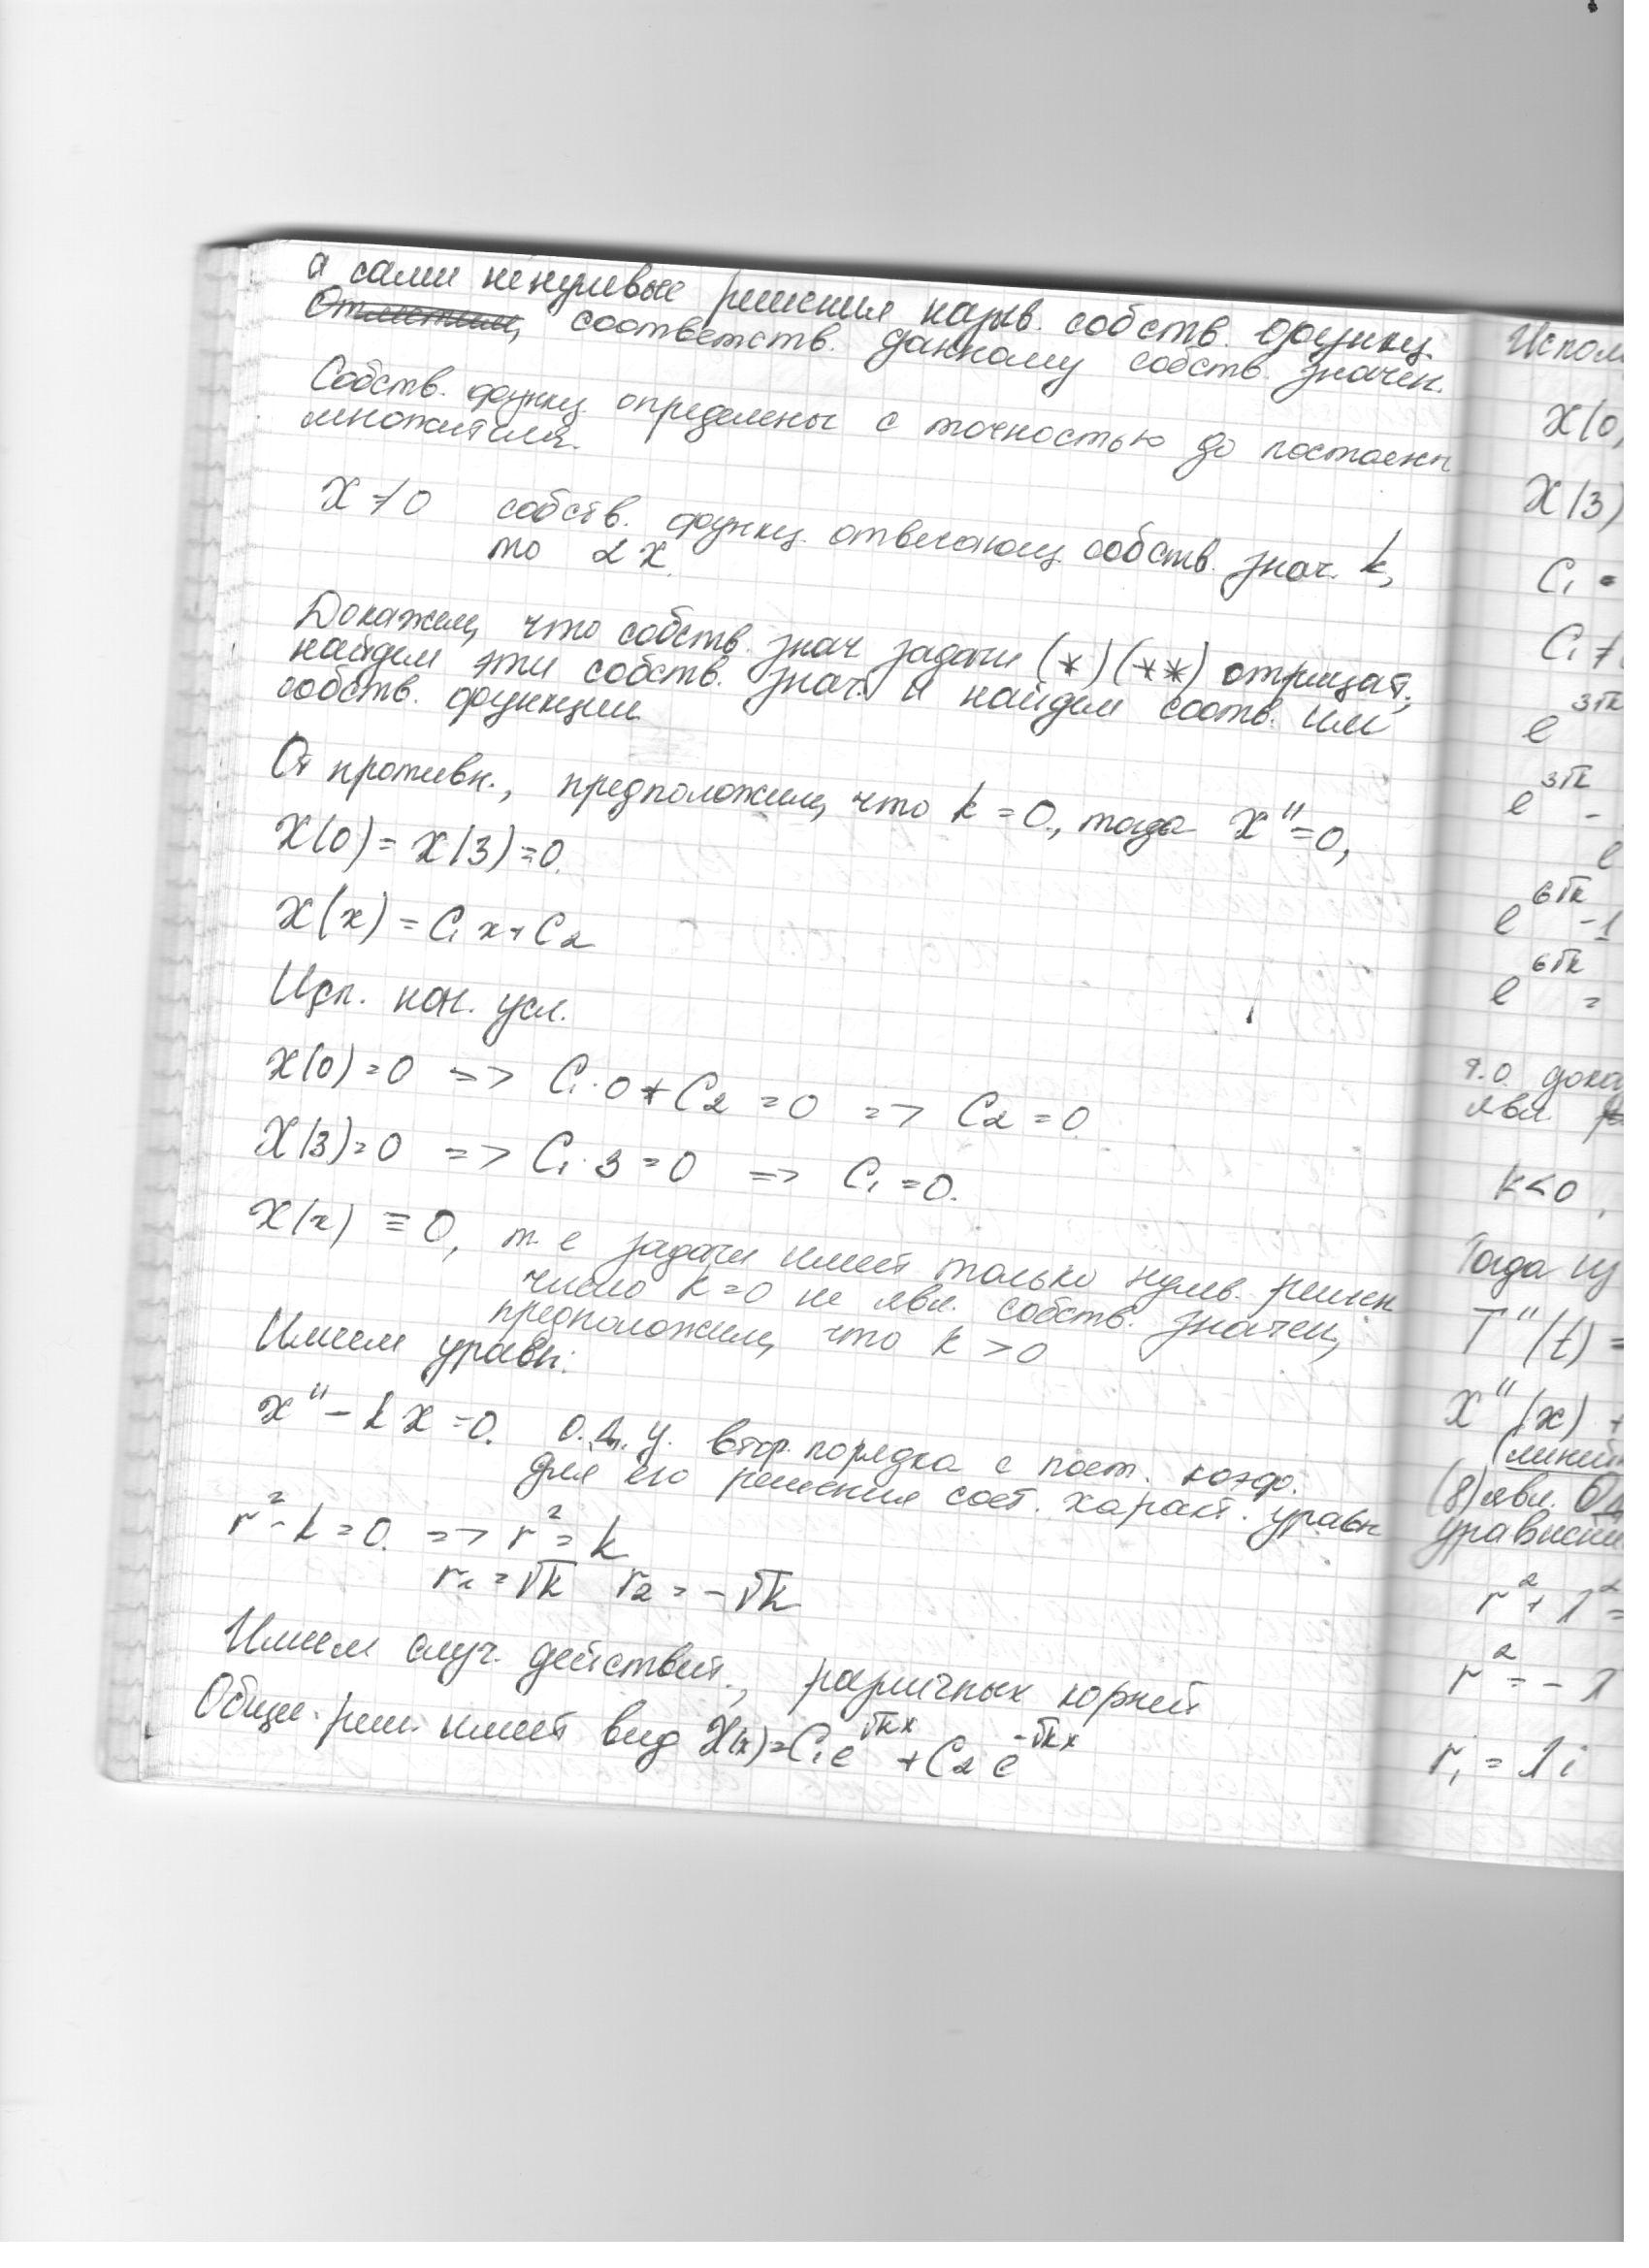 а сами ненулевые решения назыв. собств. функц.
Отметим, соответств. данному собств. значен.
Собств. функц. определены с точностью до постоянн
множителя.
X ≠ 0 собств. функц. отвечающ собств. знач. k,
то αX.
Докажем, что собств. знач. задачи (*)(**) отрицат,
найдем эти собств. знач. и найдем соотв. им
собств. функции.
От противн., предположим, что k = 0, тогда X'' = 0,
X(0) = X(3) = 0.
X(x) = C₁x + C₂
Исп. нач. усл.
X(0) = 0 => C₁·0 + C₂ = 0 => C₂ = 0
X(3) = 0 => C₁·3 = 0 => C₁ = 0.
X(x) ≡ 0, т. е задачи имеет только нулев. решен
число k = 0 не явл. собств. значен,
предположим, что k > 0
Имеем уравн:
X'' - kX = 0. О.Д.У. втор. порядка с пост. коэф.
Для его решения сост. характ. уравн
r² - k = 0. => r² = k
r₁ = √k r₂ = -√k
Имеем случ. действит., различных корней
Общее реш. имеет вид X(x) = C₁e^√kx + C₂e^-√kx
Испол
X(0,
X(3)
C₁
C₁ ≠
e^3√k
e^3√k -
e
e^6√k - 1
e^6√k =
Т.О. дока
явл.
k < 0,
Тогда из
T''(t) =
X''(x) +
(линей
(8) явл. ОД
уравнени
r² + λ² =
r² = - λ
r₁ = λi